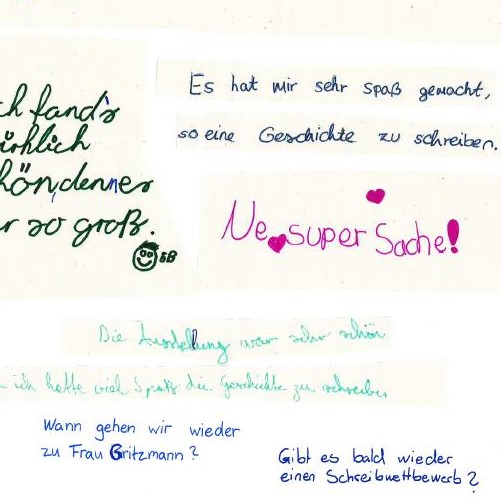 ch fand's
wirklich
hön, denn es
r so groß.
5B
Es hat mir sehr spaß gemacht,
so eine Geschichte zu schreiben.
Ne super Sache!
Die Ausstellung war sehr schön
ich hatte viel Spaß die Geschichte zu schreiben
Wann gehen wir wieder
zu Frau Gritzmann?
Gibt es bald wieder
einen Schreibwettbewerb?